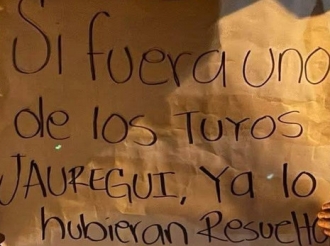 Si fuera uno
de los TUYOS
JAUREGUI, Ya lo
hubieran Resuelto